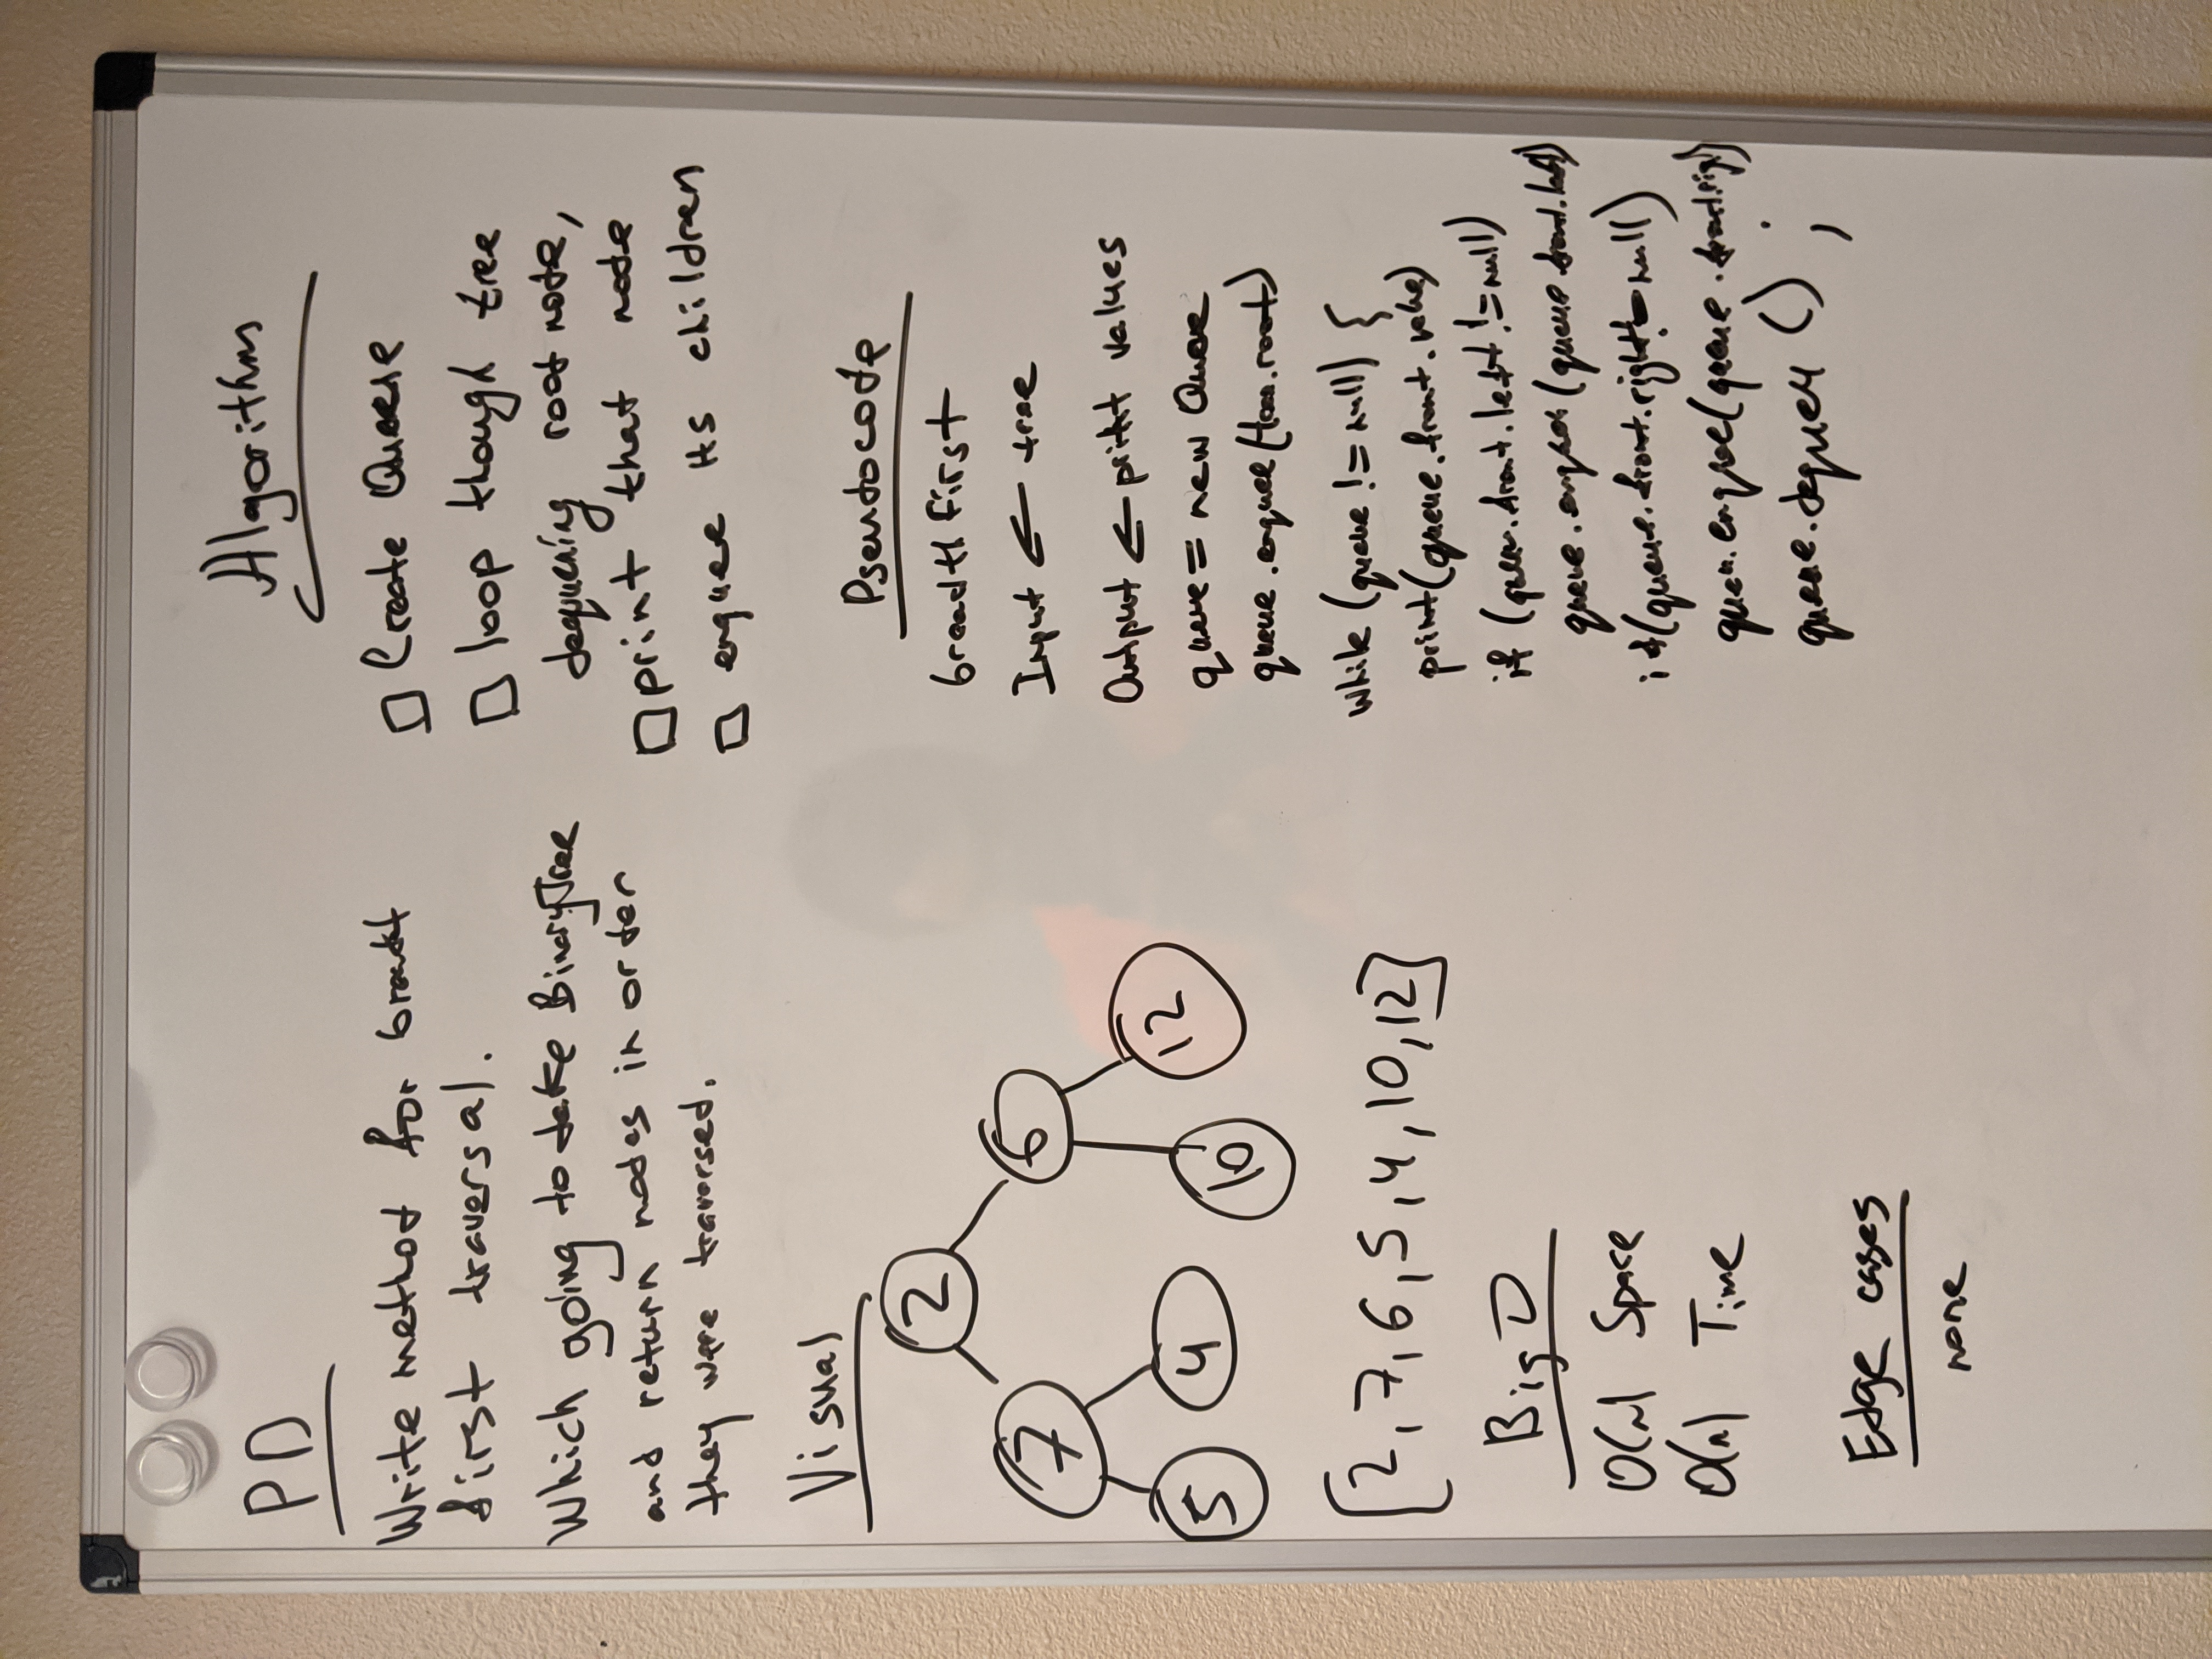 PD
Write method for breadt
first traversal.
Which going to take BinaryTree
and return nodes in order
they were traversed.
Visual
2
7 6
5 4 10 12
[2, 7, 6, 5, 4, 10, 12]
Big O
O(n) Space
O(n) Time
Edge cases
none
Algorithm
□ Create Queue
□ loop though tree
dequeuing root node,
□ print that node
□ enquee its children
Pseudocode
breadth First
Input ← tree
Output ← print values
queue = new Queue
queue.enquee(tree.root)
while (queue != null) {
print(queue.front.value)
if (queue.front.left != null)
queue.enquee(queue.front.left)
if(queue.front.right != null)
queue.enquee(queue.front.right)
queue.dequeu();